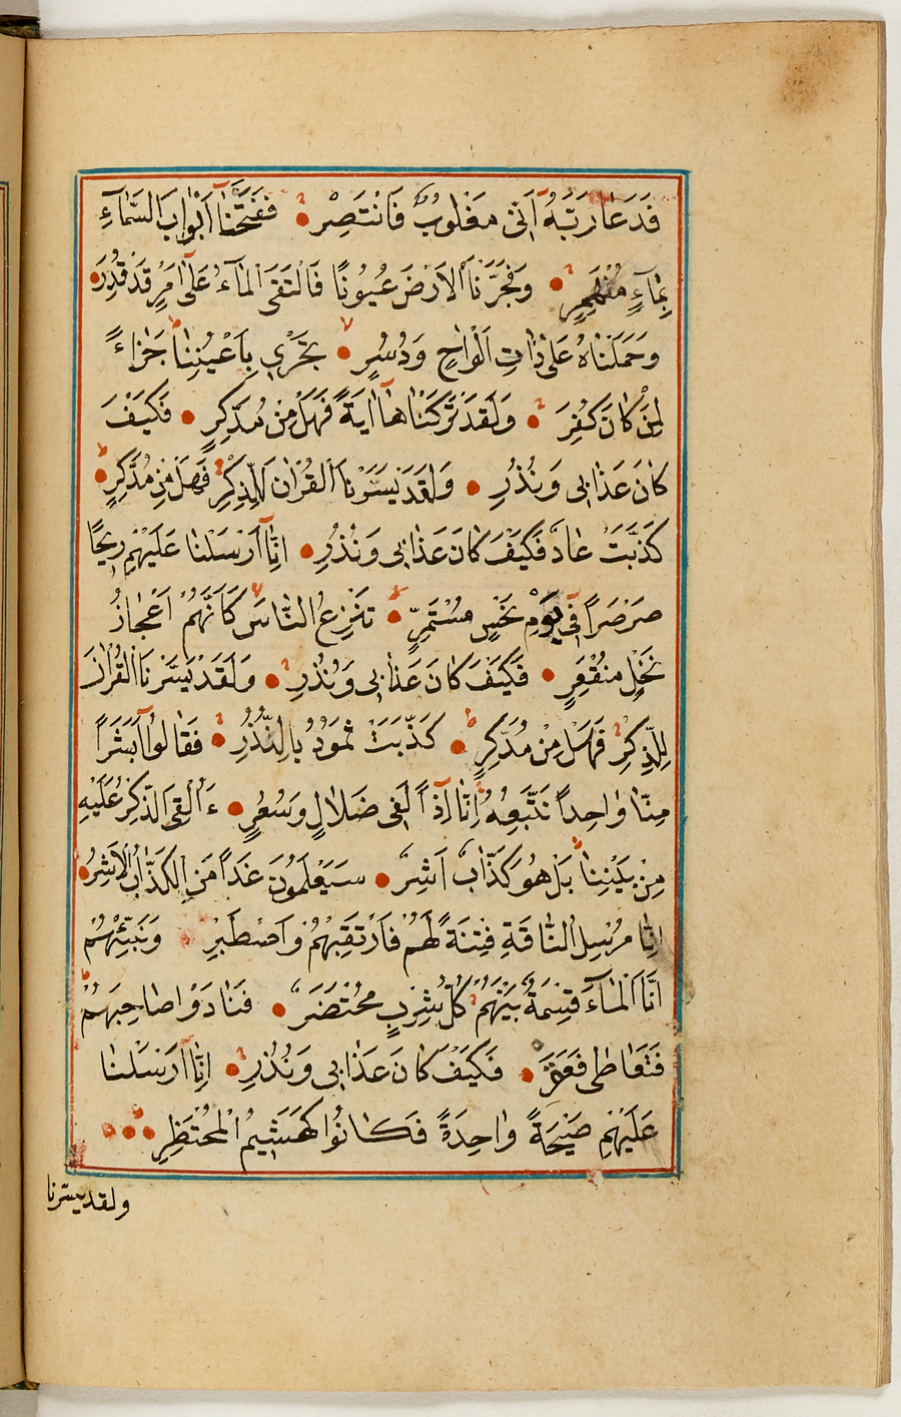 فَدَعَا رَبَّهُ اَنّٖى مَغْلُوبٌ فَانْتَصِرْ ۞ فَفَتَحْنَا اَبْوَابَ السَّمَاءِ
بِمَاءٍ مُنْهَمِرٍ ۞ وَفَجَّرْنَا الْاَرْضَ عُيُونًا فَالْتَقَى الْمَاءُ عَلٰى اَمْرٍ قَدْ قُدِرَ ۞
وَحَمَلْنَاهُ عَلٰى ذَاتِ اَلْوَاحٍ وَدُسُرٍ ۞ تَجْرٖى بِاَعْيُنِنَا جَزَاءً
لِمَنْ كَانَ كُفِرَ ۞ وَلَقَدْ تَرَكْنَاهَا اٰيَةً فَهَلْ مِنْ مُدَّكِرٍ ۞ فَكَيْفَ
كَانَ عَذَابٖى وَنُذُرِ ۞ وَلَقَدْ يَسَّرْنَا الْقُرْاٰنَ لِلذِّكْرِ فَهَلْ مِنْ مُدَّكِرٍ ۞
كَذَّبَتْ عَادٌ فَكَيْفَ كَانَ عَذَابٖى وَنُذُرِ ۞ اِنَّا اَرْسَلْنَا عَلَيْهِمْ رٖيحًا
صَرْصَرًا فٖى يَوْمِ نَحْسٍ مُسْتَمِرٍّ ۞ تَنْزِعُ النَّاسَ كَاَنَّهُمْ اَعْجَازُ
نَخْلٍ مُنْقَعِرٍ ۞ فَكَيْفَ كَانَ عَذَابٖى وَنُذُرِ ۞ وَلَقَدْ يَسَّرْنَا الْقُرْاٰنَ
لِلذِّكْرِ فَهَلْ مِنْ مُدَّكِرٍ ۞ كَذَّبَتْ ثَمُودُ بِالنُّذُرِ ۞ فَقَالُوا اَبَشَرًا
مِنَّا وَاحِدًا نَتَّبِعُهُ اِنَّا اِذًا لَفٖى ضَلَالٍ وَسُعُرٍ ۞ ءَاُلْقِىَ الذِّكْرُ عَلَيْهِ
مِنْ بَيْنِنَا بَلْ هُوَ كَذَّابٌ اَشِرٌ ۞ سَيَعْلَمُونَ غَدًا مَنِ الْكَذَّابُ الْاَشِرُ ۞
اِنَّا مُرْسِلُوا النَّاقَةِ فِتْنَةً لَهُمْ فَارْتَقِبْهُمْ وَاصْطَبِرْ ۞ وَنَبِّئْهُمْ
اَنَّ الْمَاءَ قِسْمَةٌ بَيْنَهُمْ كُلُّ شِرْبٍ مُحْتَضَرٌ ۞ فَنَادَوْا صَاحِبَهُمْ
فَتَعَاطٰى فَعَقَرَ ۞ فَكَيْفَ كَانَ عَذَابٖى وَنُذُرِ ۞ اِنَّا اَرْسَلْنَا
عَلَيْهِمْ صَيْحَةً وَاحِدَةً فَكَانُوا كَهَشٖيمِ الْمُحْتَظِرِ ۞
ولقد يسرنا